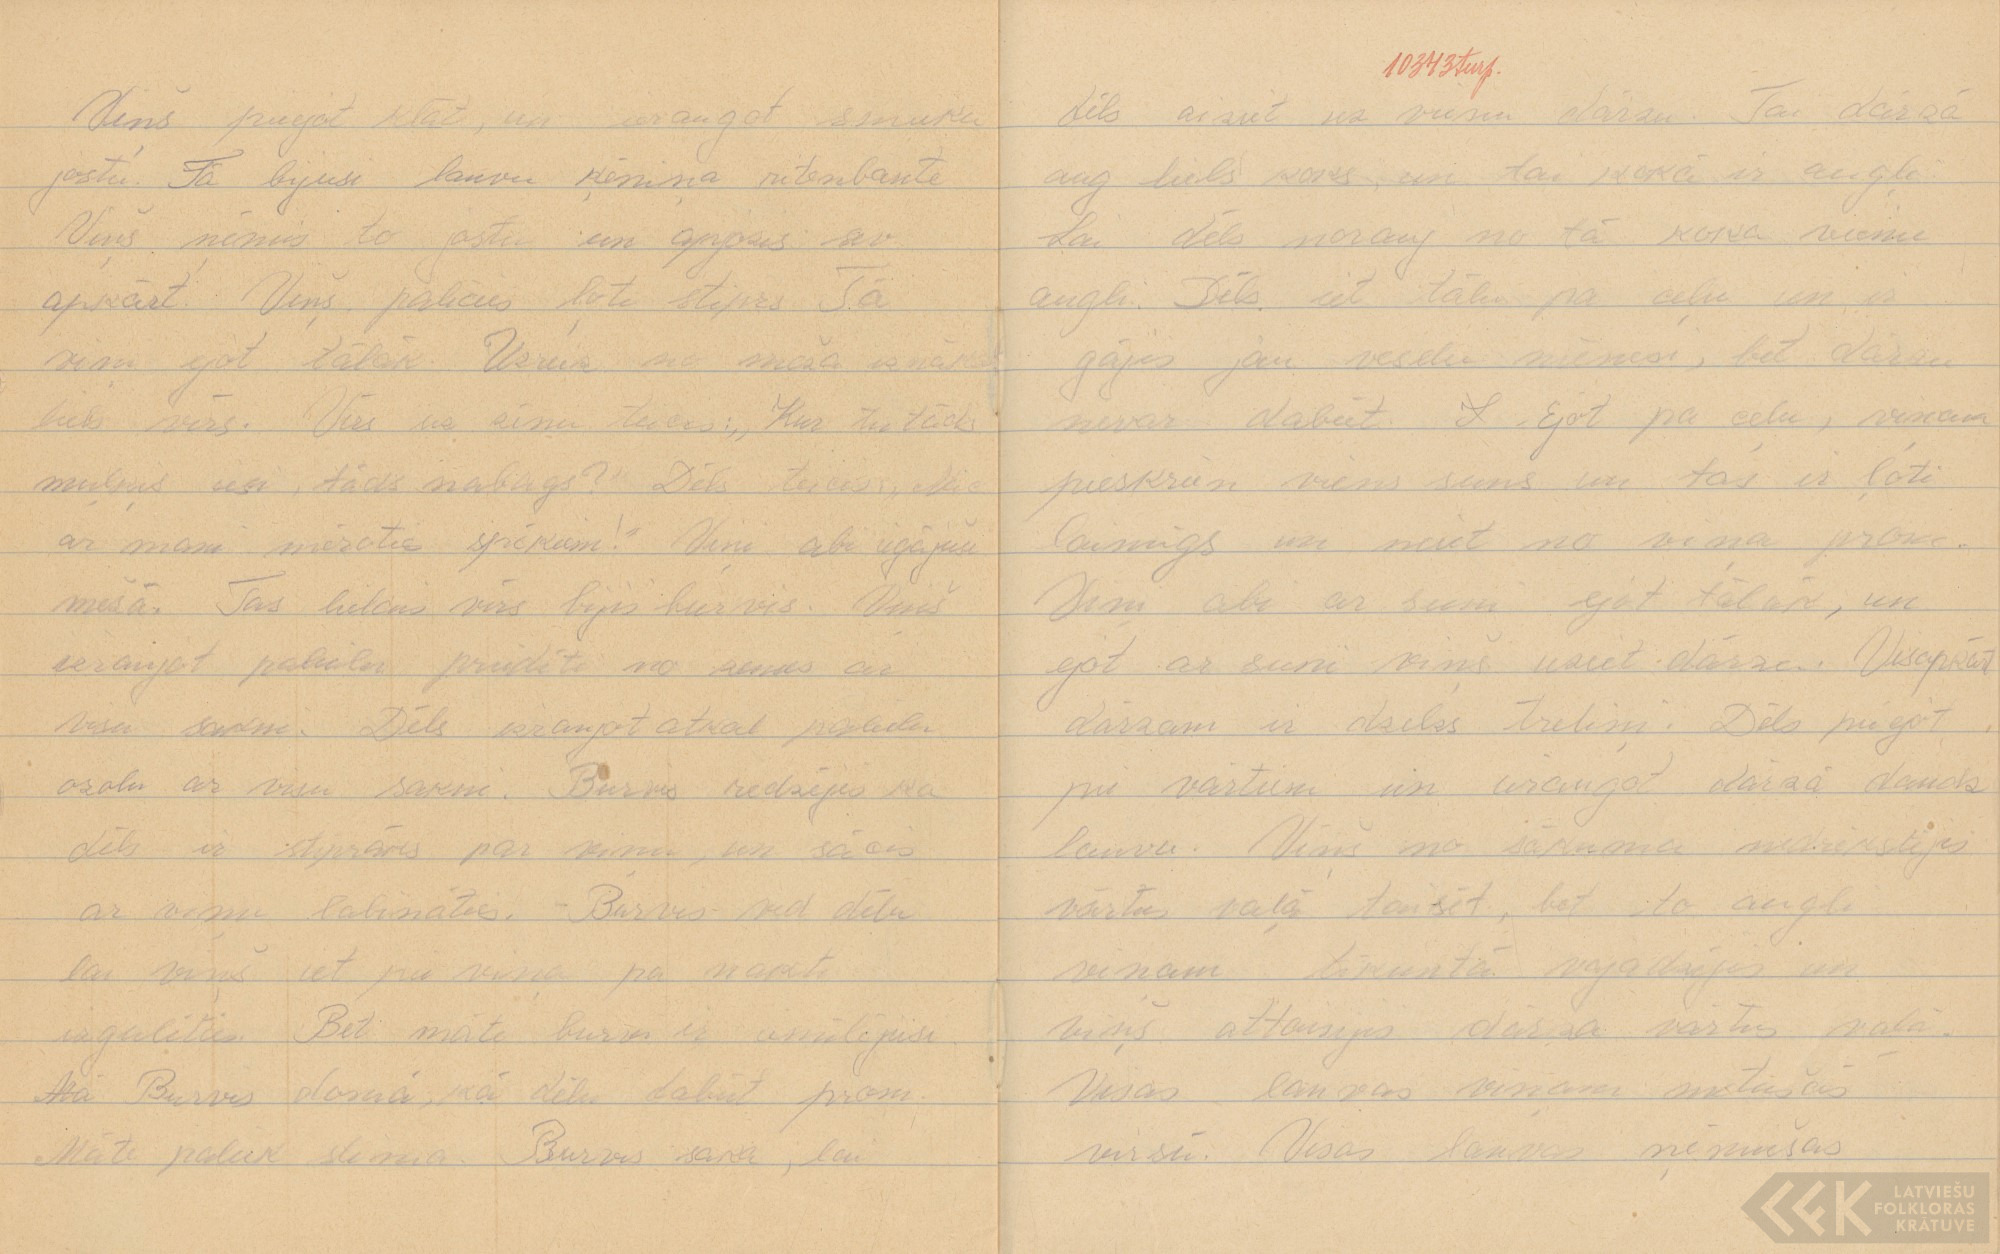 Viņš piegot klāt, un ieraugot smuku
jostu. Tā bijusi lauvu ķēniņa ritenbante
Viņš ņēmis to jostu un apjozis sev
apkārt. Viņš palicis ļoti stiprs Tā
viņi ejot tālāk. Uzreiz no meža iznākot
liels vīrs. Vīrs uz zēnu teicis: „Kur tu tāds
muļķis esi, tāds nabags?" Dēls teicis: „Nāc
ar mani mēroties spēkiem!" Viņi abi iegājuši
mežā. Tas lielais vīrs bijis burvis. Viņš
izraujot palielu priedīti no zemes ar
visu sakni. Dēls izraujot atkal palielu
ozolu ar visu sakni. Burvis redzējis ka
dēls ir stiprāks par viņu, un sācis
ar viņu labināties. - Burvis ved dēlu
lai viņš iet pie viņa pa nakti
izgulēties. Bet māte burvi ir iemīlējusi.
Burvis domā, kā dēlu dabūt prom.
Māte paliek slima. Burvis saka, lai
10343 turp.
dēls aiziet uz vienu dārzu. Tai dārzā
aug liels koks, un tai kokā ir augļi.
Lai dēls norauj no tā koka vienu
augli. Dēls iet tālu pa ceļu un ir
gājis jau veselu mēnesi, bet dārzu
nevar dabūt. Ejot pa ceļu, viņam
pieskrien viens suns un tas ir ļoti
laimīgs un neiet no viņa prom.
Viņi abi ar suni ejot tālāk, un
ejot ar suni viņš uziet dārzu. Visapkārt
dārzam ir dzelzs treliņi. Dēls piegot
pie vārtiem un ieraugot dārzā daudz
lauvu. Viņš no sākuma nedrīkstējis
vārtus vaļā taisīt, bet to augli
viņam tikuntā vajadzējis un
viņš attaisījis dārza vārtus vaļā.
Visas lauvas viņam metušās
virsū. Visas lauvas ņēmušas
LATVIEŠU
FOLKLORAS
KRĀTUVE